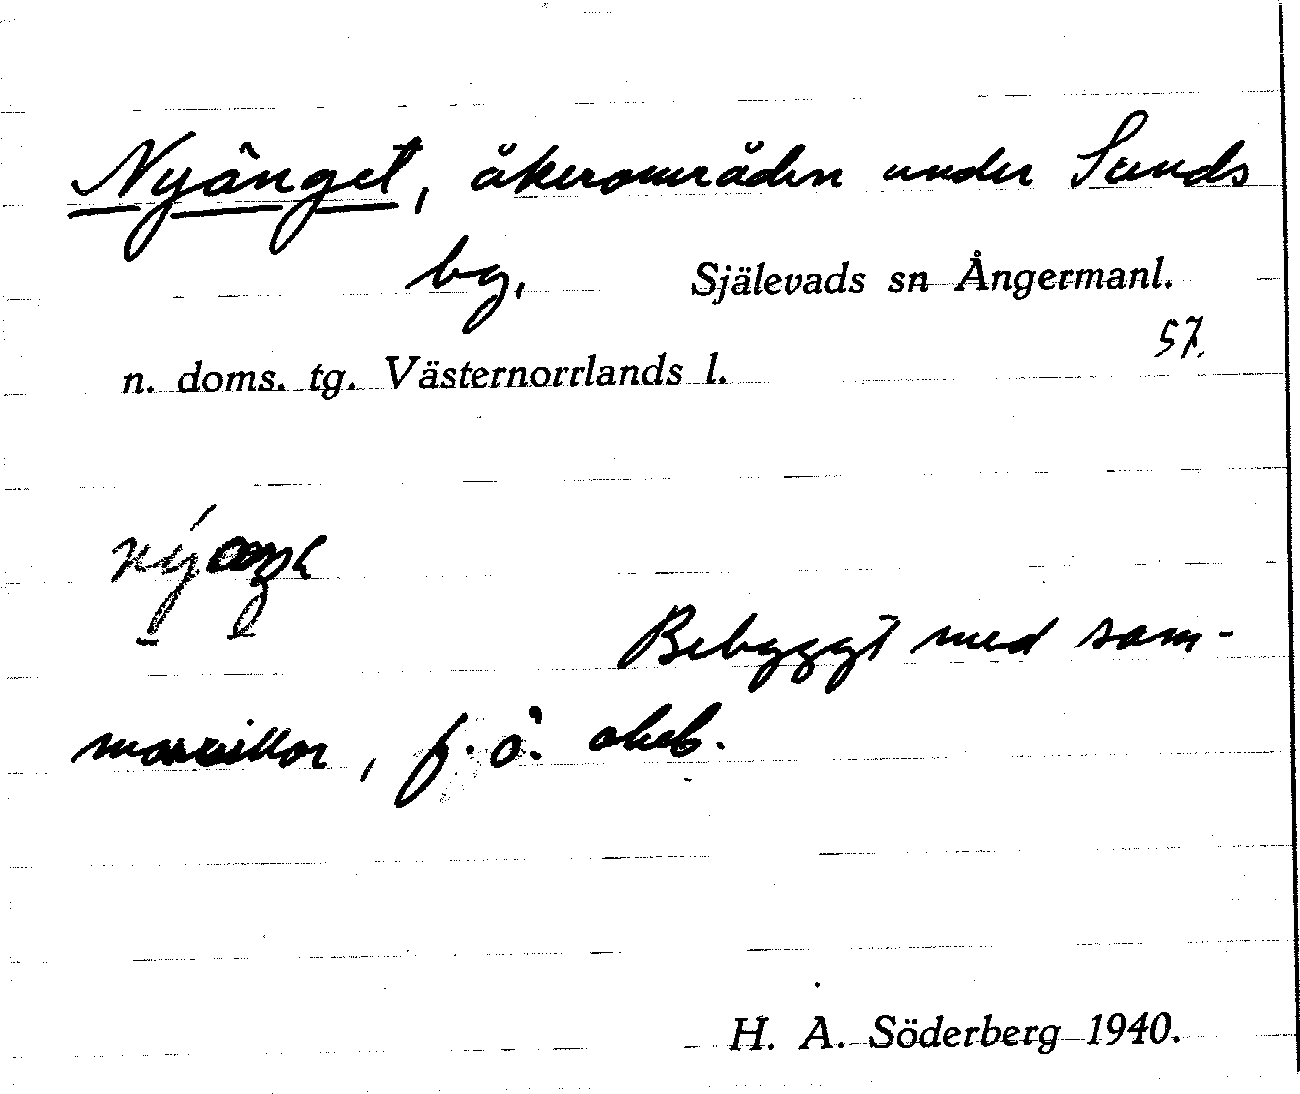 Nyänget, åkerområden under Sunds
bg, Själevads sn Ångermanl.
57.
n. doms. tg. Västernorrlands l.
Bebyggt med som-
marvillor, f. ö. obeb.
H. A. Söderberg 1940.